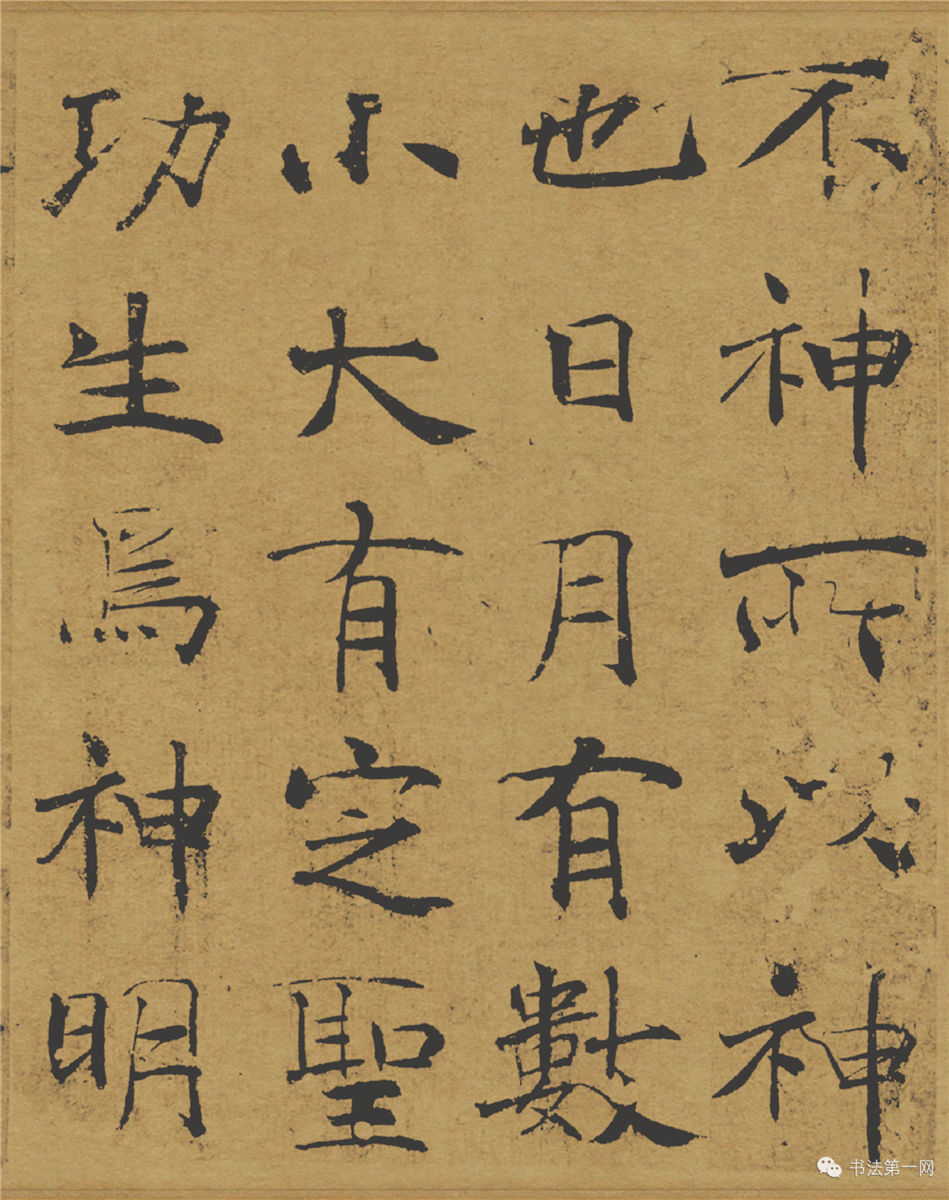 不神所以神
也日月有數
小大有定聖
功生焉神明
书法第一网